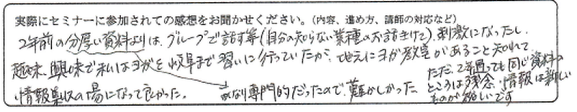 実際にセミナーに参加されての感想をお聞かせください。(内容、進め方、講師の対応など)
2年前の分厚い資料よりは、グループで話す事(自分の知らない業種のお話きけて)、刺激になったし、
趣味、興味で私はヨガを 岐阜まで習いに行っていたが、地元にヨガ教室があること知れて、
情報収集の場になって良かった。
かなり専門的だったので難しかった
ただ、2年通っても同じ資料の
ところは残念、情報は新しい
ものが欲しいです